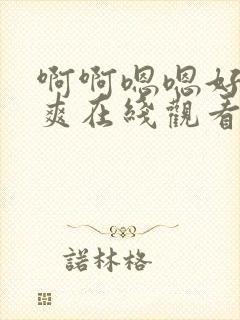 啊啊嗯嗯好
爽在綫觀看
諾林格